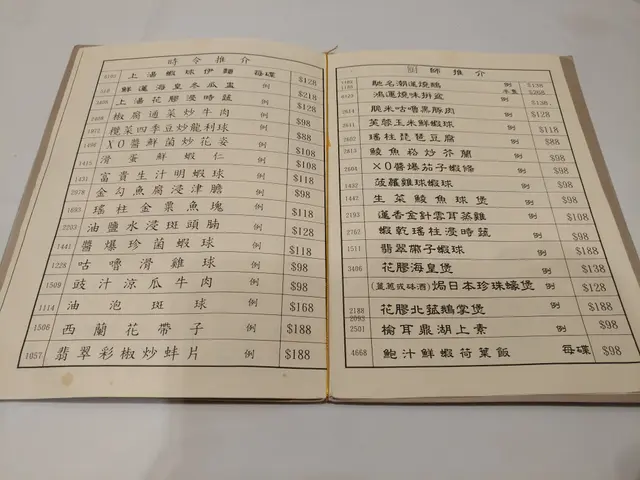 時令推介
上湯蝦球伊麵 每碟 $128
鮮蓮海皇冬瓜盅 例 $218
上湯花膠浸時蔬 例 $128
椒腐通菜炒牛肉 例 $98
欖菜四季豆炒龍利球 例 $88
XO醬鮮菌炒花姿 例 $108
1415 滑蛋鮮蝦仁 例 $108
1431 富貴生汁明蝦球 例 $118
2078 金勾魚腐浸津膽 例 $98
1693 瑤柱金粟魚塊 例 $118
2203 油鹽水浸斑頭腩 例 $128
1441 醬爆珍菌蝦球 例 $118
1228 咕嚕滑雞球 例 $98
1509 豉汁涼瓜牛肉 例 $98
1114 油泡斑球 例 $168
1506 西蘭花帶子 例 $188
1057 翡翠彩椒炒蚌片 例 $188
廚師推介
馳名潮蓮燒鵝 例 $138
鴻運燒味拼盆 例 $138
脆米咕嚕黑豚肉 例 $128
2611 芙蓉玉米鮮蝦球 例 $118
2602 瑤柱琵琶豆腐 例 $88
2613 鯪魚崧炒芥蘭 例 $98
2604 XO醬爆茄子蝦條 例 $98
432 菠蘿雞球蝦球 例 $98
1442 生菜鯪魚球煲 例 $98
2193 蓮香金針雲耳蒸雞 例 $108
2762 蝦乾瑤柱浸時蔬 例 $98
1511 翡翠帶子蝦球 例 $188
3406 花膠海皇煲 例 $138
(薑蔥或砵酒)焗日本珍珠蠔煲 例 $128
2188 花膠北菰鵝掌煲 例 $188
2501 榆耳鼎湖上素 例 $98
4668 鮑汁鮮蝦荷葉飯 每碟 $98